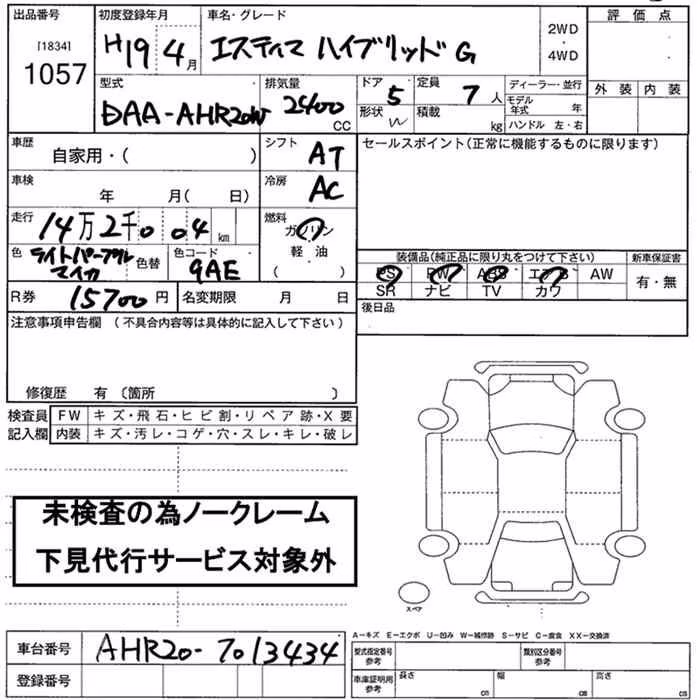 出品番号 初度登録年月 車名・グレード 評価点
[1834] 1057 H19年4月 エスティマ ハイブリッド G 2WD・4WD
外装 内装
型式 排気量 ドア 5 定員 7人 ディーラー・並行
DAA-AHR20W 2400CC 形状 W 積載 kg モデル年式 年
ハンドル 左・右
車歴 自家用・( ) シフト AT セールスポイント(正常に機能するものに限ります)
車検 年 月( 日) 冷房 AC
走行 14万2千004km 燃料 ガソリン
軽油
( )
色 ライトパープルマイカ 色替 色コード 9AE
装備品(純正品に限り丸をつけて下さい) 新車保証書
PS PW ABS エアB AW 有・無
SR ナビ TV カワ
R券 15700円 名変期限 月 日 後日品
注意事項申告欄(不具合内容等は具体的に記入して下さい)
修復歴 有 〔箇所 〕
検査員 FW キズ・飛石・ヒビ割・リペア跡・X要
記入欄 内装 キズ・汚レ・コゲ・穴・スレ・キレ・破レ
未検査の為ノークレーム
下見代行サービス対象外
スペア
A−キズ E−エクボ U−凹み W−補修跡 S−サビ C−腐食 XX−交換済
車台番号 AHR20-7013434 型式指定番号 参考 類別区分番号 参考
登録番号 車庫証明用 参考 長さ cm 幅 cm 高さ cm